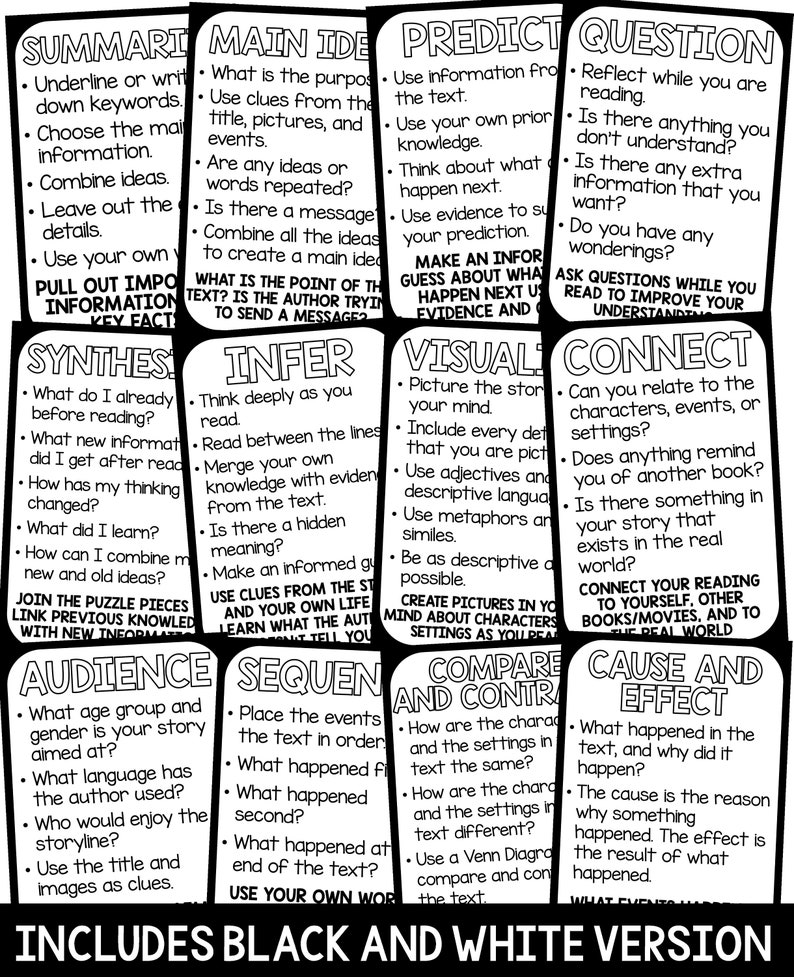 SUMMARI
• Underline or writ
down keywords.
• Choose the mai
information.
• Combine ideas.
• Leave out the
details.
• Use your own
PULL OUT IMPO
INFORMATION
KEY FACTS
MAIN IDE
• What is the purpos
• Use clues from the
title, pictures, and
events.
• Are any ideas or
words repeated?
• Is there a message?
• Combine all the ideas
to create a main idea
WHAT IS THE POINT OF TH
TEXT? IS THE AUTHOR TRYIN
TO SEND A MESSAGE?
PREDICT
• Use information fro
the text.
• Use your own prior
knowledge.
• Think about what
happen next.
• Use evidence to su
your prediction.
MAKE AN INFOR
GUESS ABOUT WHA
HAPPEN NEXT US
EVIDENCE AND
QUESTION
• Reflect while you are
reading.
• Is there anything you
don't understand?
• Is there any extra
information that you
want?
• Do you have any
wonderings?
ASK QUESTIONS WHILE YOU
READ TO IMPROVE YOUR
UNDERSTANDING
SYNTHESI
• What do I already
before reading?
• What new informat
did I get after read
• How has my thinking
changed?
• What did I learn?
• How can I combine m
new and old ideas?
JOIN THE PUZZLE PIECES
LINK PREVIOUS KNOWLED
WITH NEW INFORMATIO
INFER
• Think deeply as you
read.
• Read between the lines
• Merge your own
knowledge with eviden
from the text.
• Is there a hidden
meaning?
• Make an informed gu
USE CLUES FROM THE ST
AND YOUR OWN LIFE
LEARN WHAT THE AUT
DOESN'T TELL YOU
VISUALI
• Picture the stor
your mind.
• Include every det
that you are pict
• Use adjectives and
descriptive langua
• Use metaphors an
similes.
• Be as descriptive a
possible.
CREATE PICTURES IN YO
MIND ABOUT CHARACTERS
SETTINGS AS YOU REA
CONNECT
• Can you relate to the
characters, events, or
settings?
• Does anything remind
you of another book?
• Is there something in
your story that
exists in the real
world?
CONNECT YOUR READING
TO YOURSELF, OTHER
BOOKS/MOVIES, AND TO
THE REAL WORLD
AUDIENCE
• What age group and
gender is your story
aimed at?
• What language has
the author used?
• Who would enjoy the
storyline?
• Use the title and
images as clues.
SEQUEN
• Place the events
the text in order.
• What happened fi
• What happened
second?
• What happened at
end of the text?
USE YOUR OWN WOR
COMPARE
AND CONTRA
• How are the charac
and the settings in
text the same?
• How are the chara
and the settings in
text different?
• Use a Venn Diagra
compare and con
the text.
CAUSE AND
EFFECT
• What happened in the
text, and why did it
happen?
• The cause is the reason
why something
happened. The effect is
the result of what
happened.
WHAT EVENTS HAPPEN
INCLUDES BLACK AND WHITE VERSION